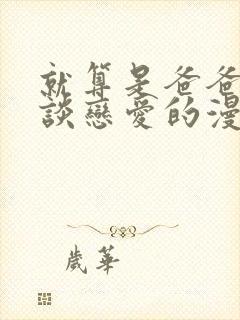 就算是爸爸
談戀愛的漫
歲華